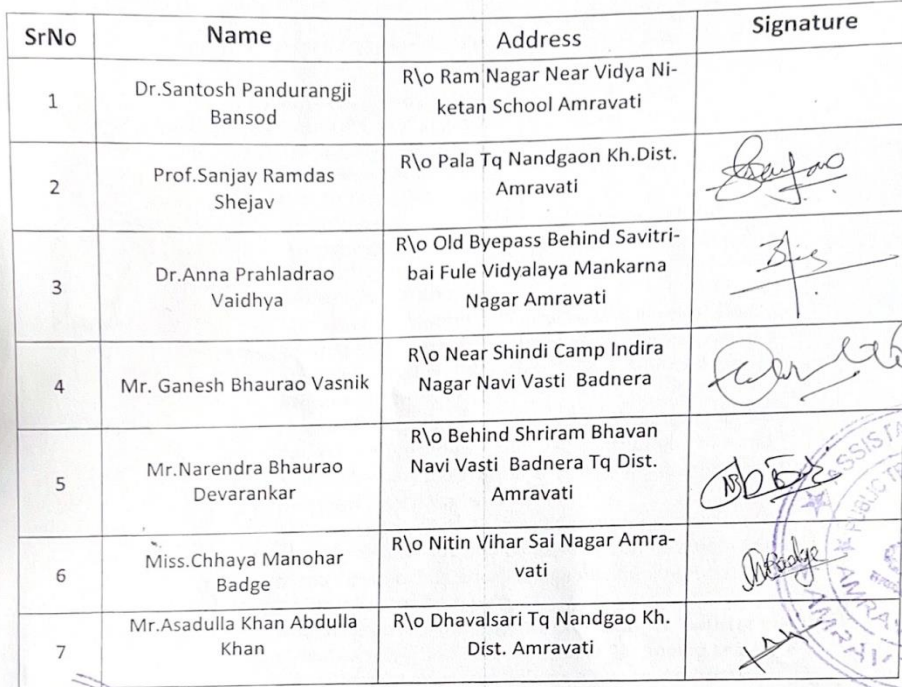 SrNo Name Address Signature
1 Dr.Santosh Pandurangji R\o Ram Nagar Near Vidya Ni-
Bansod ketan School Amravati
2 Prof.Sanjay Ramdas R\o Pala Tq Nandgaon Kh.Dist.
Shejav Amravati
3 Dr.Anna Prahladrao R\o Old Byepass Behind Savitri-
Vaidhya bai Fule Vidyalaya Mankarna
Nagar Amravati
4 Mr. Ganesh Bhaurao Vasnik R\o Near Shindi Camp Indira
Nagar Navi Vasti Badnera
5 Mr.Narendra Bhaurao R\o Behind Shriram Bhavan
Devarankar Navi Vasti Badnera Tq Dist.
Amravati
6 Miss.Chhaya Manohar R\o Nitin Vihar Sai Nagar Amra-
Badge vati
7 Mr.Asadulla Khan Abdulla R\o Dhavalsari Tq Nandgao Kh.
Khan Dist. Amravati